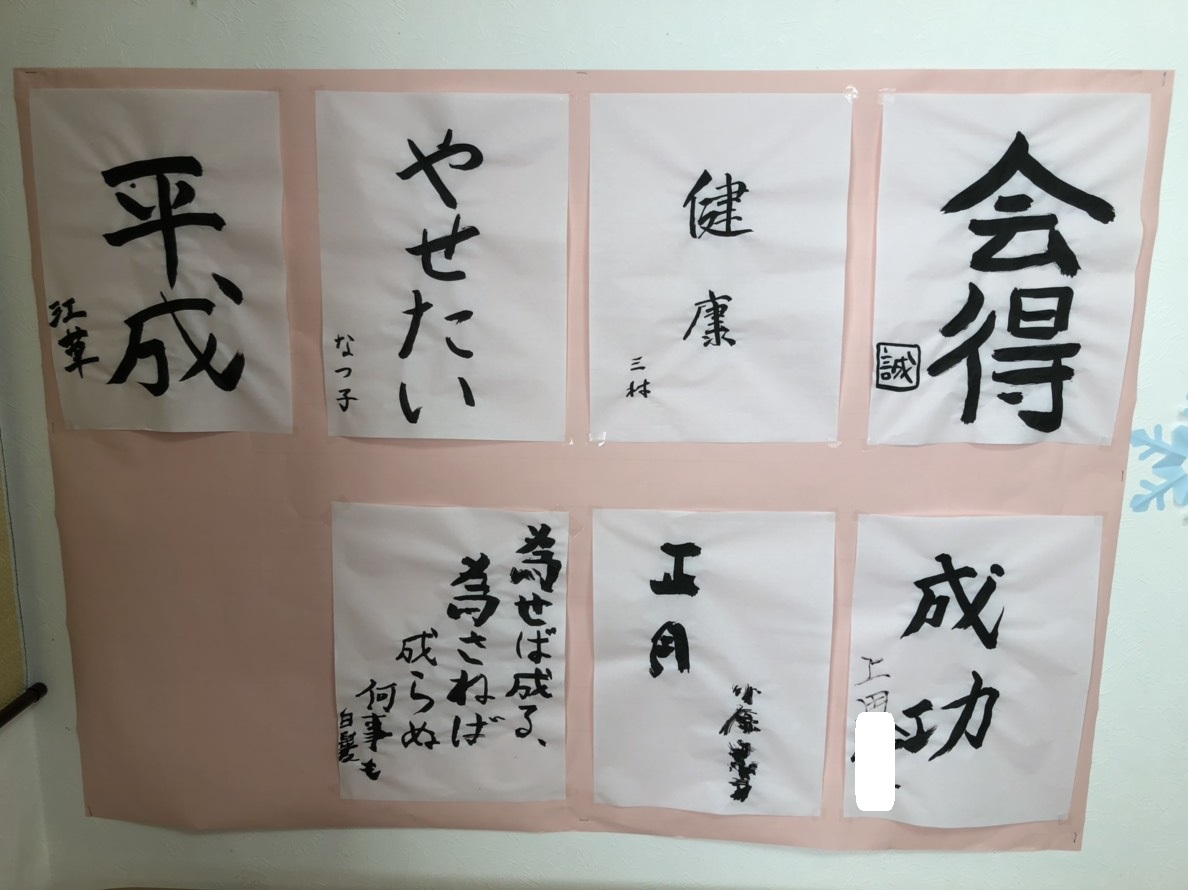 会得
誠
健康
三林
やせたい
なつ子
平成
江草
成功
上田
正月
為せば成る、
為さねば
成らぬ
何事も
白髪